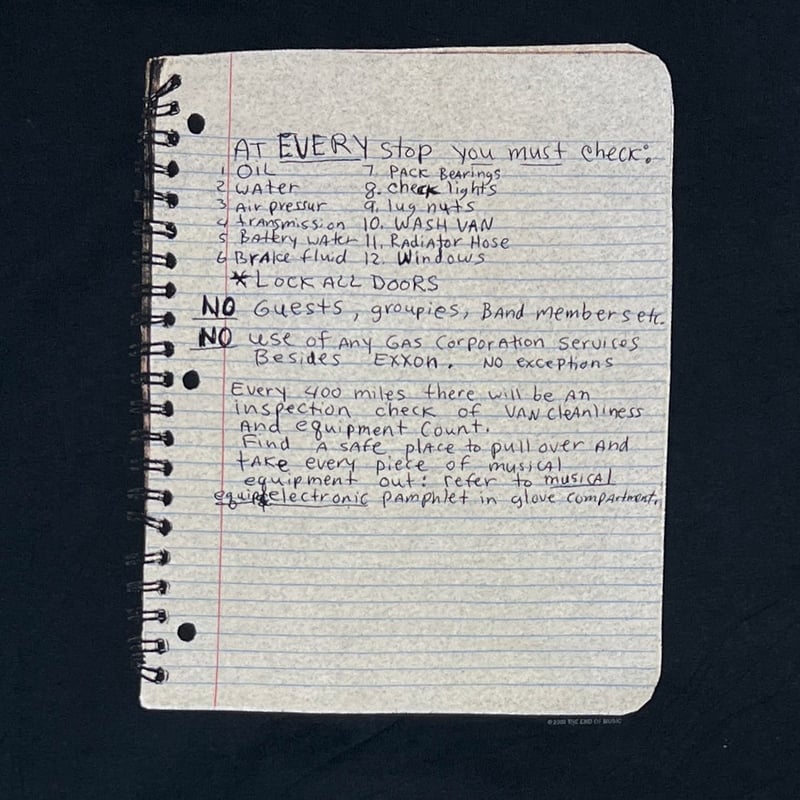 AT EVERY stop you must check:
1 OIL 7. PACK BEArings
2 wAter 8. check lights
3 Air pressur 9. lug nuts
4 trAnsmission 10. WASH VAN
5 BAttery WAter 11. RAdiAtor Hose
6 BrAke fluid 12. Windows
*LOCK ALL DOORS
NO Guests, groupies, BAnd members etc.
NO use of Any GAS Corporation services
Besides EXXON. NO exceptions
Every 400 miles there will be AN
inspection check of VAN cleAnliness
AND equipment Count.
Find A sAfe plAce to pull over AND
tAke every piece of musicAl
equipment out: refer to musicAl
electronic pAmphlet in glove compArtment.
© THE END OF MUSIC